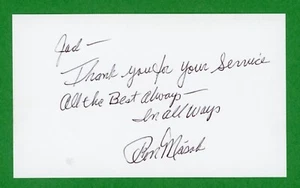 Jed —
Thank you for Your Service
All the Best Always —
In all Ways
Ron Masak